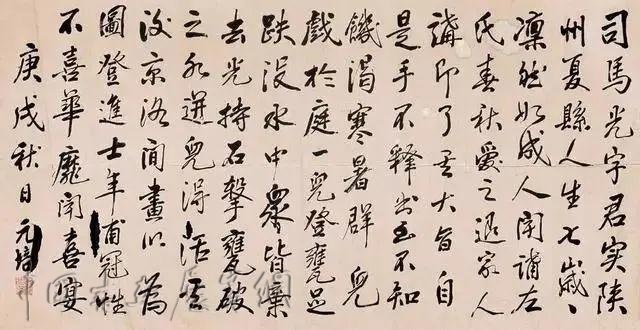 司馬光字君實陝
州夏縣人生七歲、
凜然如成人聞講左
氏春秋愛之退家人
講即了其大旨自
是手不釋书至不知
饑渴寒暑群兒
戲於庭一兒登甕足
跌没水中眾皆棄
去光持石擊甕破
之水迸兒得活其
後京洛間畫以為
圖登進士年甫冠性
不喜華靡聞喜宴
庚戌秋日元培